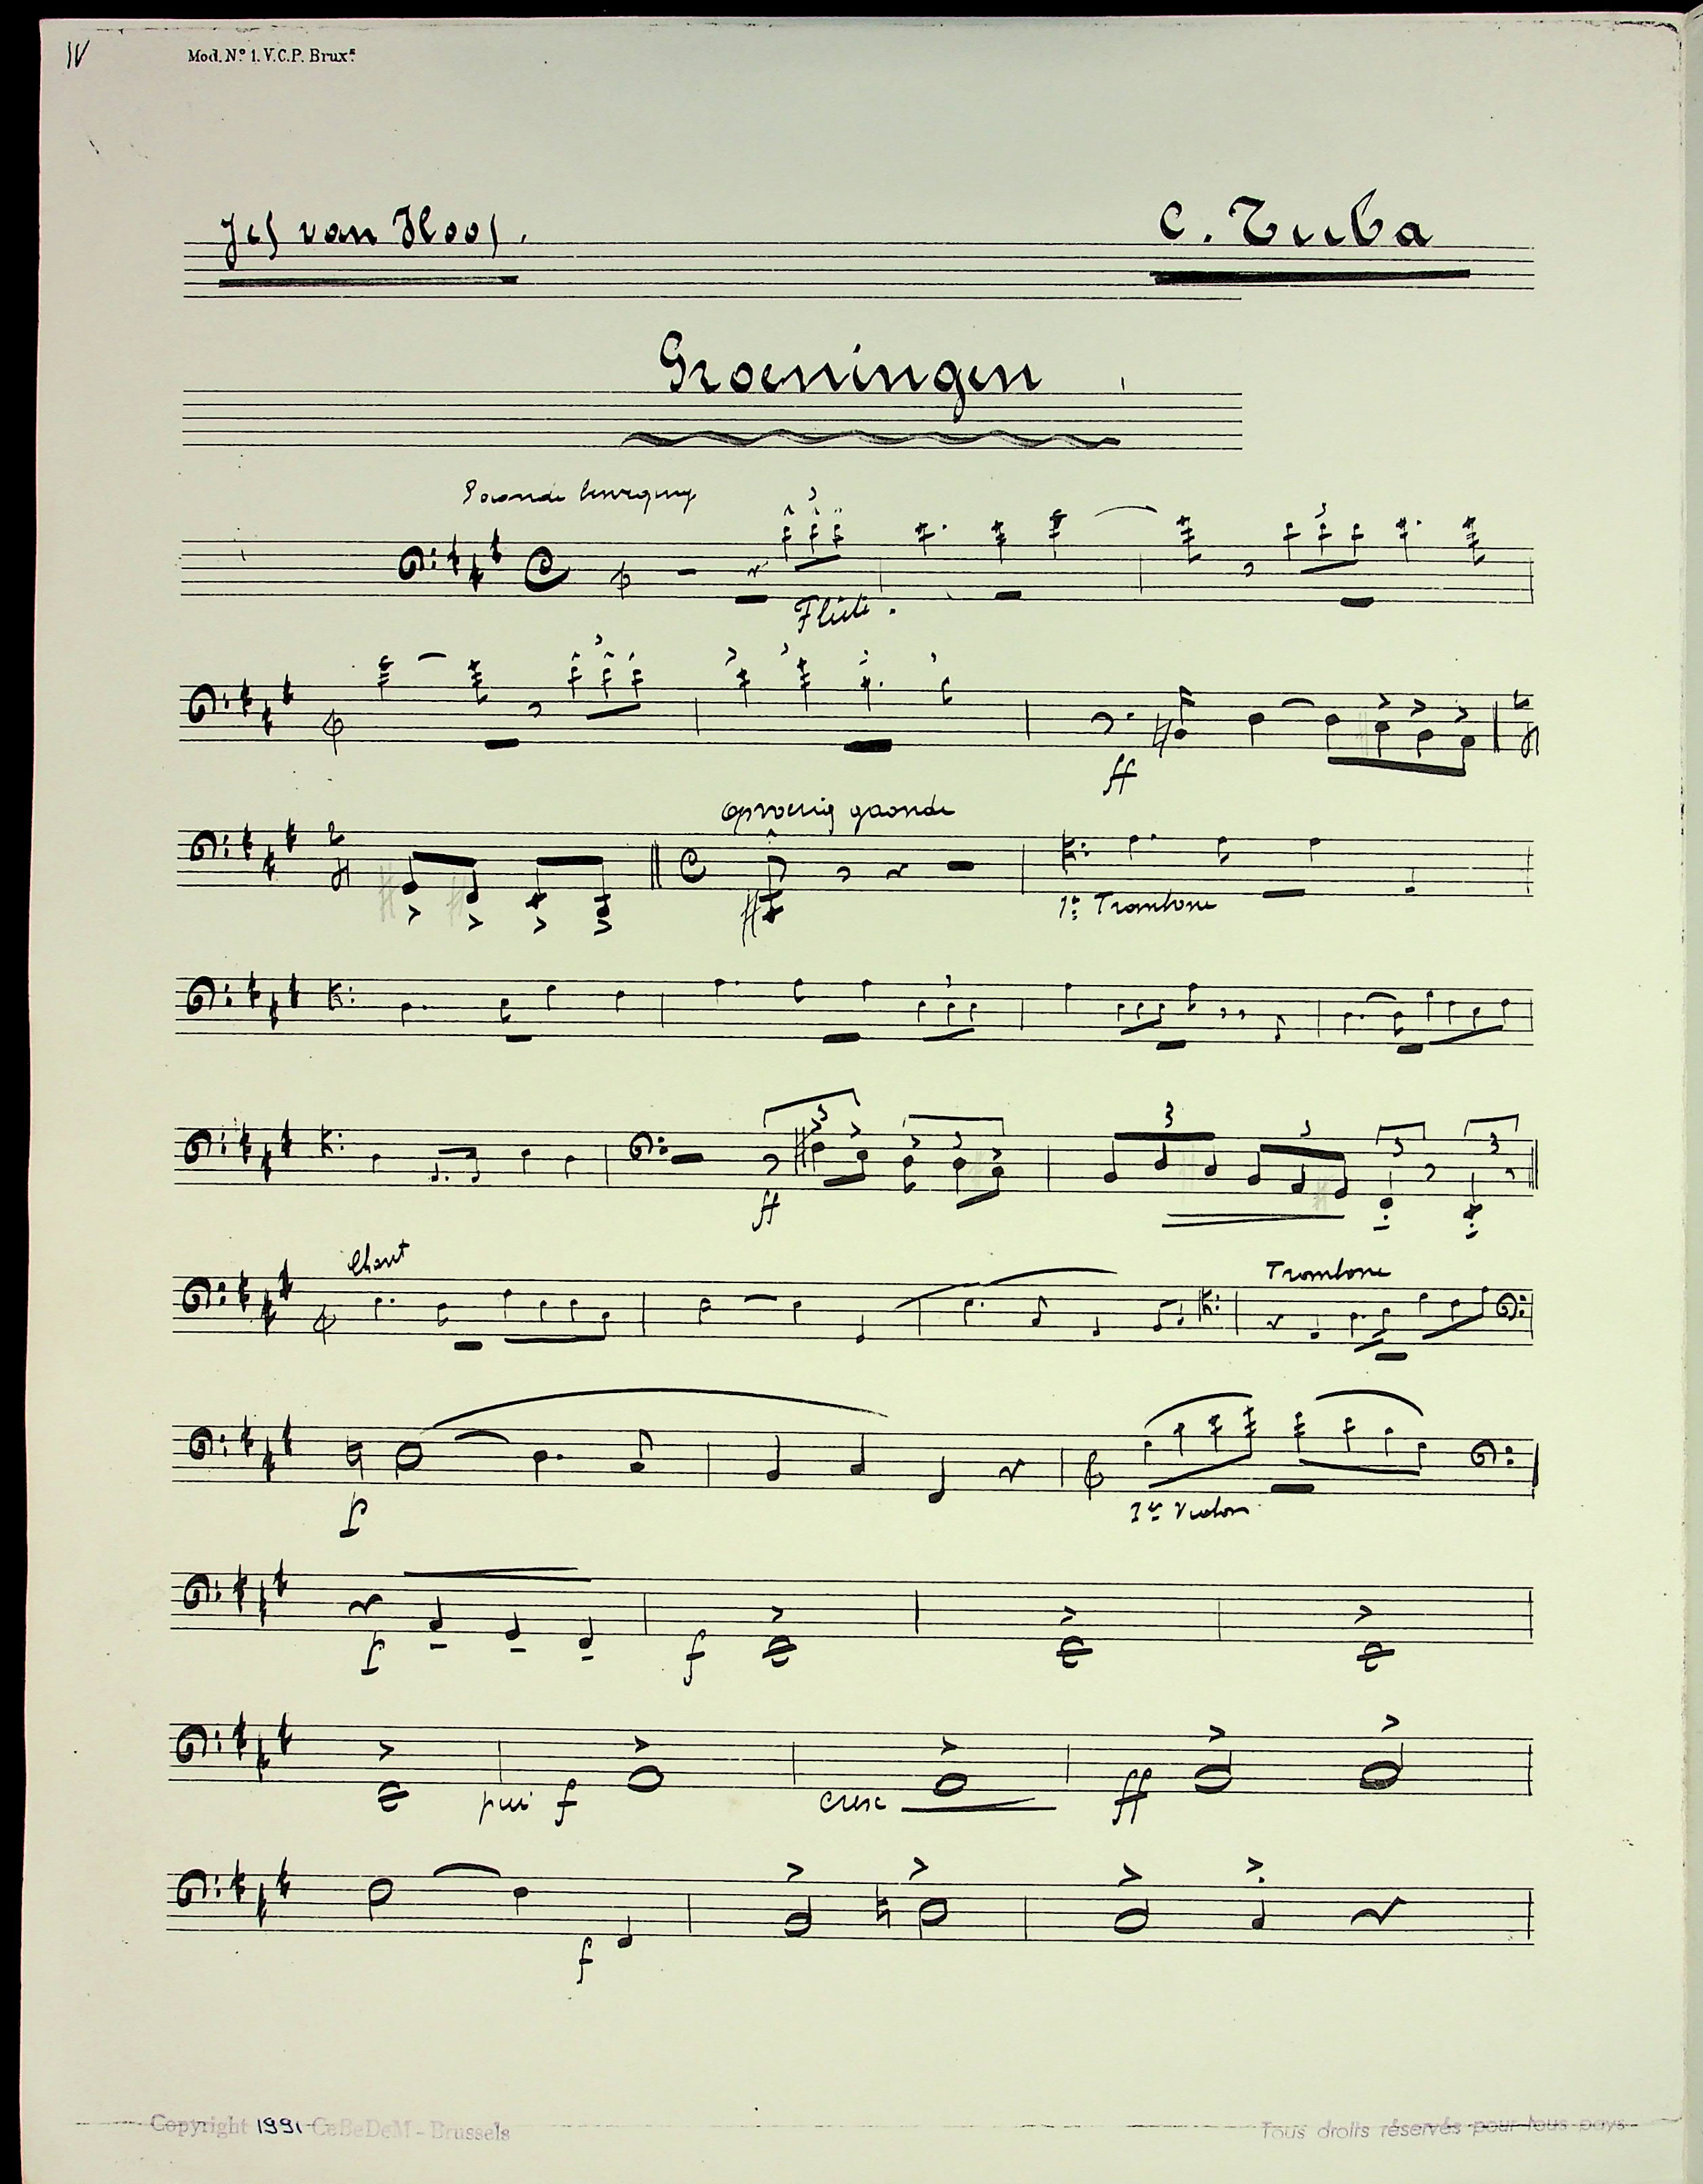 IV
Mod. Nº 1. V.C.P. Brux.
Jef van Hoof.
C. Tuba
Groeningen
3
3
Flûte.
3
ff
2
4
2
4
gaande
1e Trombone
3
3
3
ff
3
3
3
3
Chant
Trombone
p
1er Violon
p
f
più f
cresc
ff
f
Copyright 1991 CeBeDeM - Brussels
Tous droits réservés pour tous pays